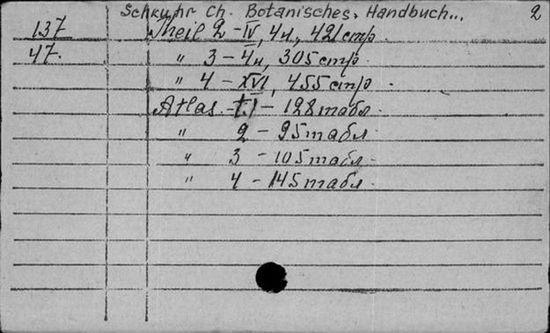 Schkuhr Ch. Botanisches. Handbuch... 2
137 Theil 2 - IV, 4н, 421 стр.
47. " 3 - 4н, 305 стр
" 4 - XVI, 455 стр.
Atlas t.1 - 128 табл.
" 2 - 95 табл.
" 3 - 105 табл.
" 4 - 145 табл.